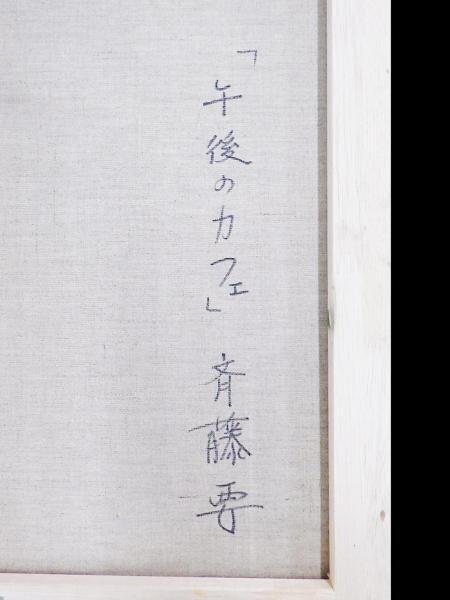 「午後のカフェ」 斉藤要